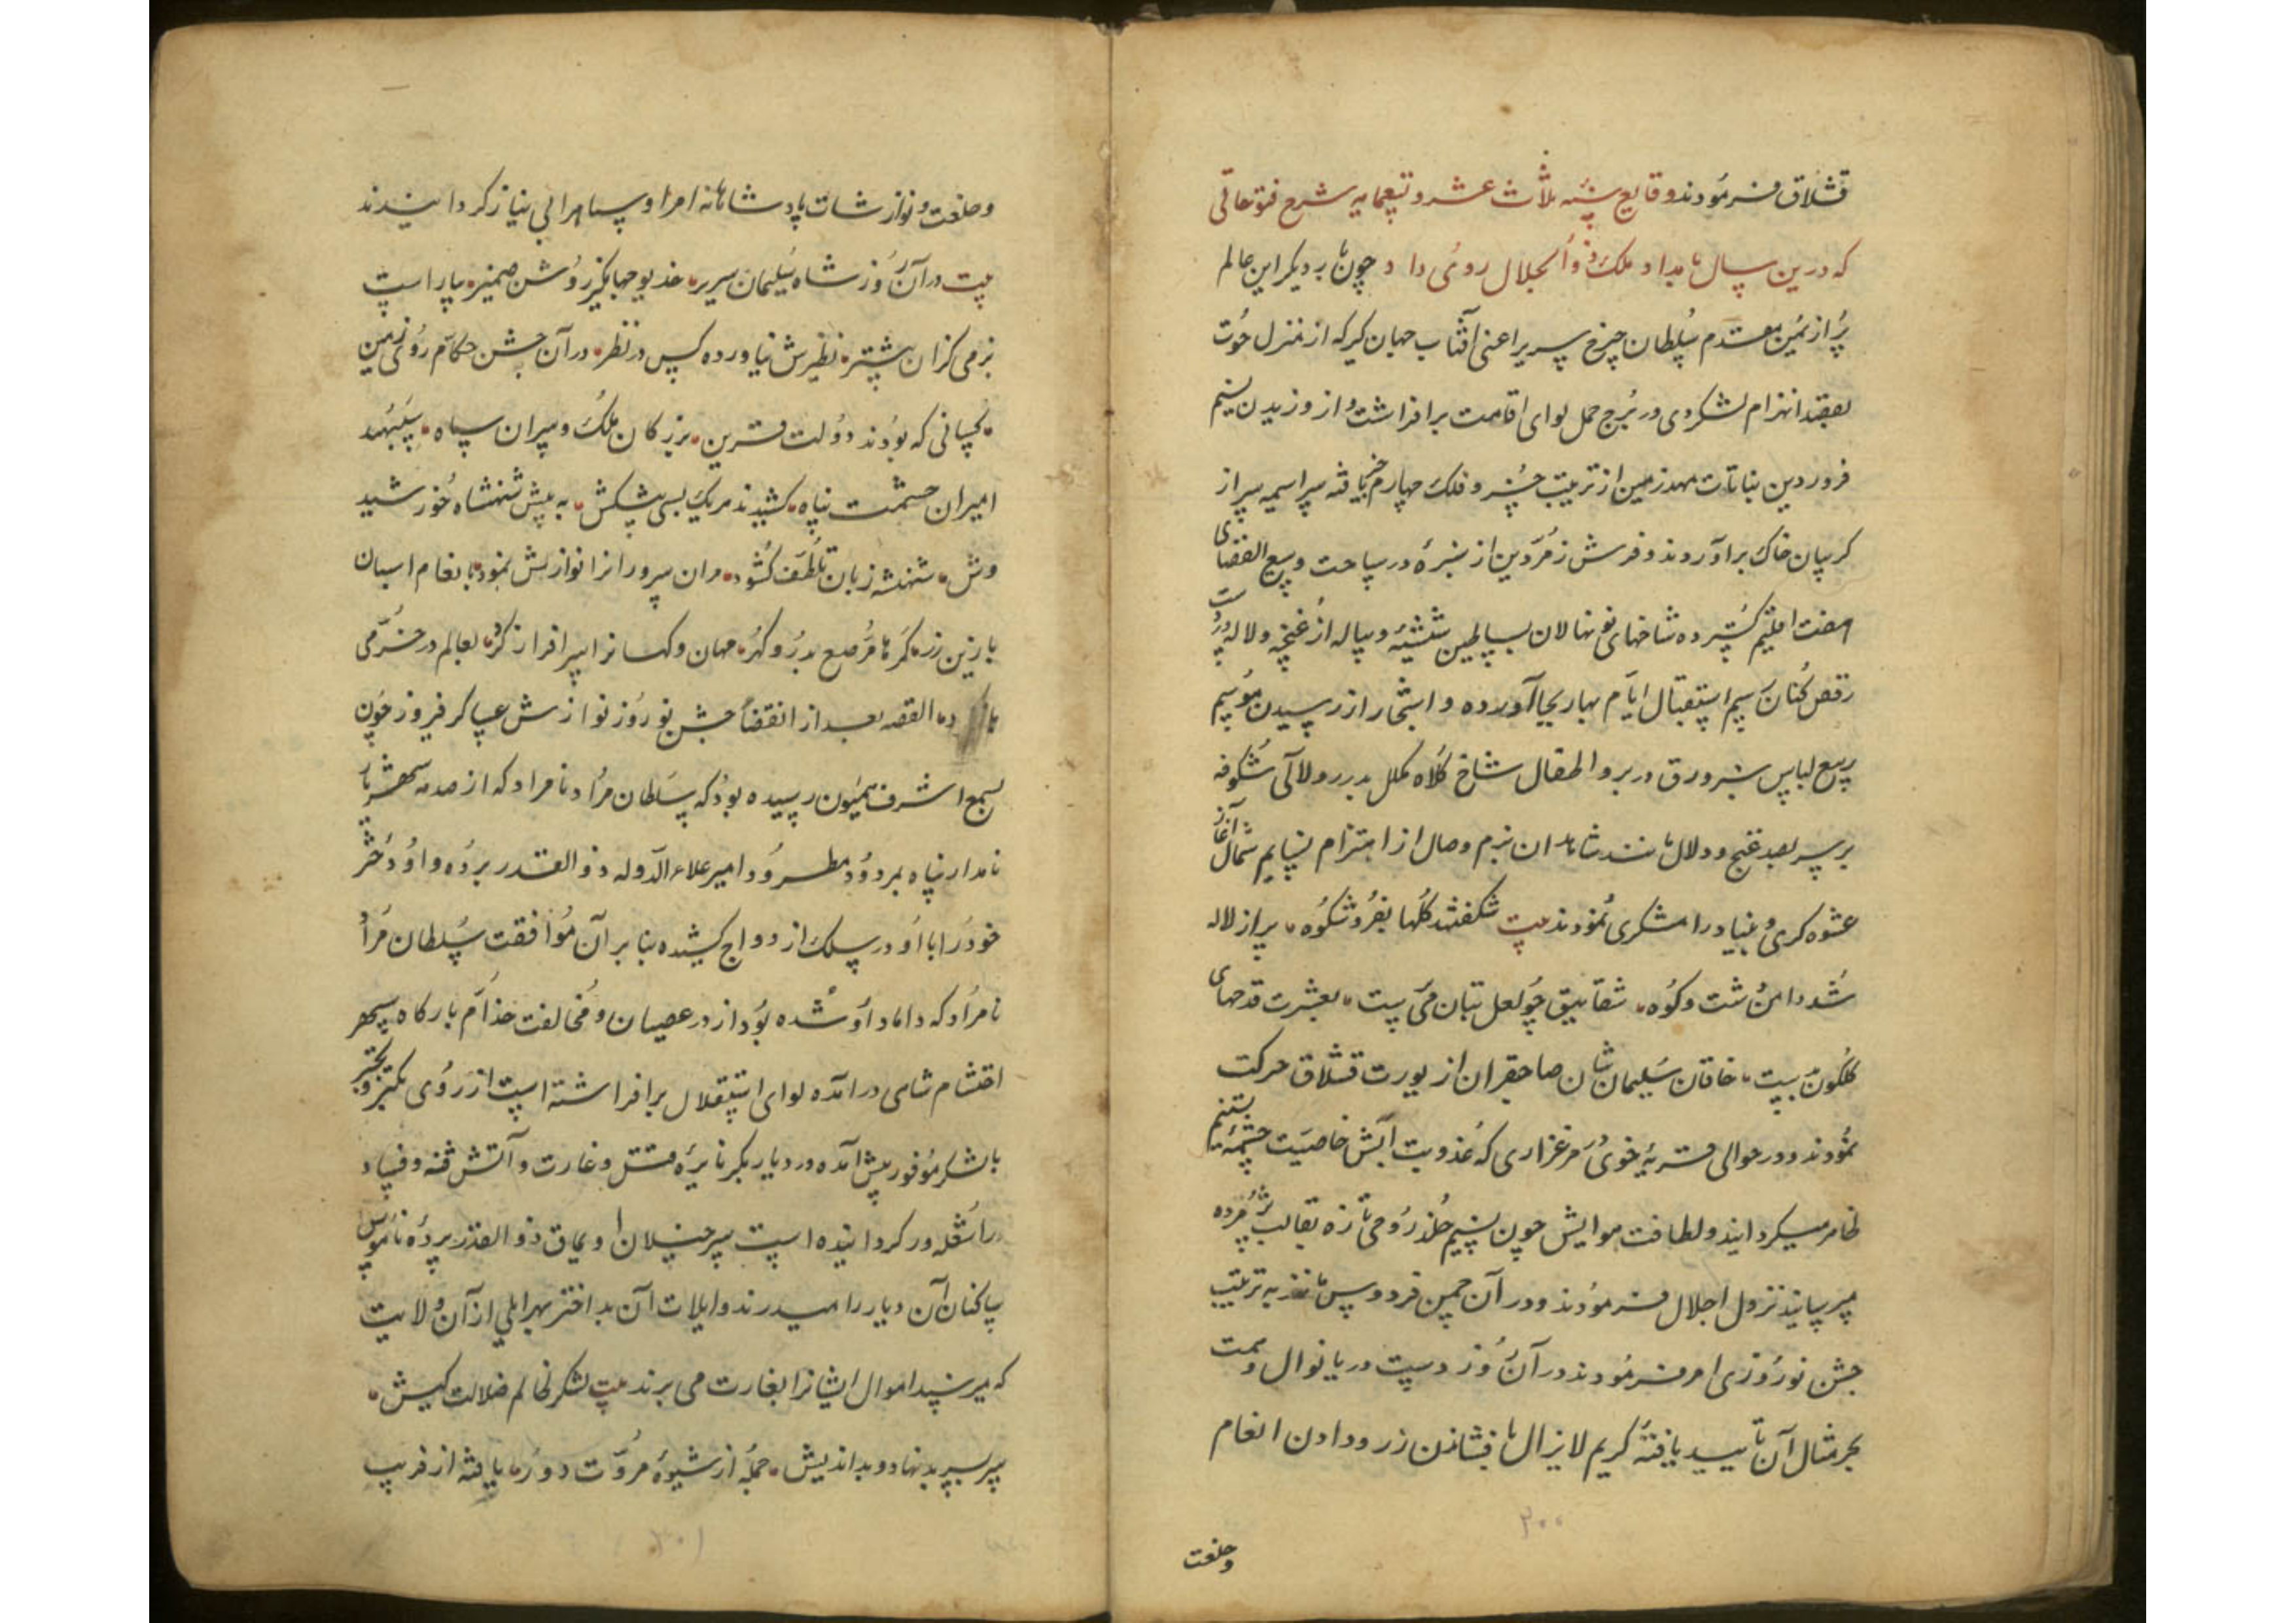 قشلاق فرمودند وقایع سنه ثلاث عشر و تسعمایه شرح فتوحاتی
که درین سال بامداد ملک ذوالجلال روی داد چون بار دیگر این عالم
پر از یمن مقدم سلطان چرخ سریر اعنی آفتاب جهان کیر که از منزل حوت
بقصد انهزام لشکر دی در برج حمل لوای اقامت برافراشت و از وزیدن نسیم
فروردین بنات نبات مهد زمین از تربیت خسرو فلک چهارم یافته سراسیمه سر از
کریبان خاک برآوردند و فرش زمردین از سبزه در ساحت وسیع الفضای
هفت اقلیم کسترده شاخهای نونهالان بساطین شیشه و پیاله از غنچه و لاله در دست
رقص کنان رسم استقبال ایام بهار بجا آورده و اشجار از رسیدن موسم
ربیع لباس سبز ورق در بر و اطفال شاخ کلاه مکلل بدرر و لآلی شکوفه
بر سر بصد غنج و دلال مانند شاهدان بزم وصال از اهتزام نسایم شمال آغاز
عشوه کری و بنیاد رامشکری نمودند بیت شکفتند کلها بفر و شکوه پر از لاله
شد دامن دشت و کوه شقایق چو لعل بتان می پرست بعشرت قدحهای
کلکون بدست خاقان سلیمان شان صاحبقران از یورت قشلاق حرکت
نمودند و در حوالی قریه خوی مرغزاری که عذوبت آبش خاصیت چشمه تسنیم
ظاهر میکردانید و لطافت هوایش چون نسیم خلد روحی تازه بقالب پژمرده
میرسانید نزول اجلال فرمودند و در آن چمن فردوس مانند به ترتیب
جشن نوروزی امر فرمودند در آن روز دست دریا نوال و همت
بحر مثال آن تایید یافته کریم لایزال بافشاندن زر و دادن انعام
وخلعت
وخلعت و نوازشات پادشاهانه امرا و سپاه را بی نیاز کردانیدند
بیت در آن روز شاه سلیمان سریر خدیو جهانکیر روشن ضمیر بیاراست
بزمی کزان بیشتر نظیرش نیاورده کس در نظر در آن جشن حکام روی زمین
کسانی که بودند دولت قرین بزرکان ملک و سران سپاه سپهبد
امیران حشمت پناه کشیدند هر یک بسی پیشکش به پیش شهنشاه خورشید
وش شهنشه زبان تلطف کشود مران سرورانرا نوازش نمود بانعام اسبان
با زین زر کمرها مرصع بدر و کهر مهان و کهانرا سرافراز کرد بعالم در خرمی
باز کرد القصه بعد از انقضاء جشن نوروز نوازش عساکر فیروز چون
بسمع اشرف همیون رسیده بود که سلطان مراد نامراد که از صدمه سپهر شهریار
نامدار پناه بمردود مطرود امیر علاء الدوله ذوالقدر برده و او دختر
خود را با او در سلک ازدواج کشیده بنابر آن موافقت سلطان مراد
نامراد که داماد او شده بود از در عصیان و مخالفت خدام بارکاه سپهر
احتشام شاهی درآمده لوای استقلال برافراشته است از روی تکبر و تجبر
با لشکر موفور پیش آمده در دیار بکر نایره قتل و غارت و آتش فتنه و فساد
را شعله ور کردانیده است سرخیلان اویماق ذوالقدر پرده ناموس
ساکنان آن دیار را میدرند و ایلات آن بد اختر بهر ایلی از آن ولایت
که میرسند اموال ایشانرا بغارت می برند بیت لشکر ظالم ضلالت کیش
سر بسر بد نهاد و بد اندیش جمله از شیوه مروت دور یافته از فریب